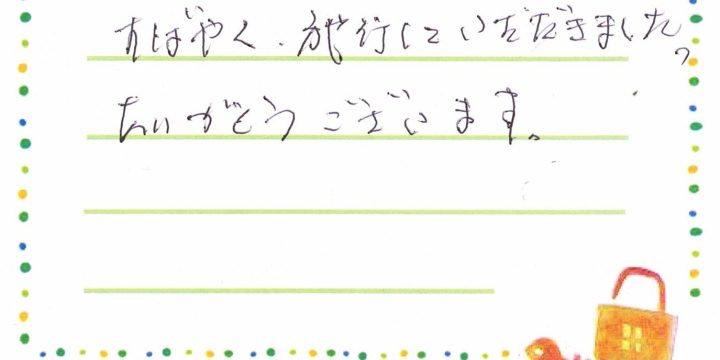 すばやく、施行していただきました。
ありがとうございます。